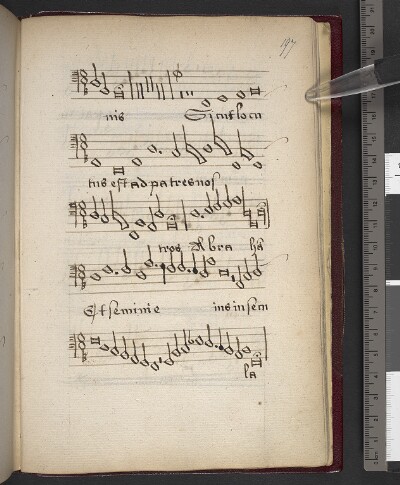 197
nis Sicut locu
tus est ad patres nos
tros Abra hā
Et semini e ius in secu
la